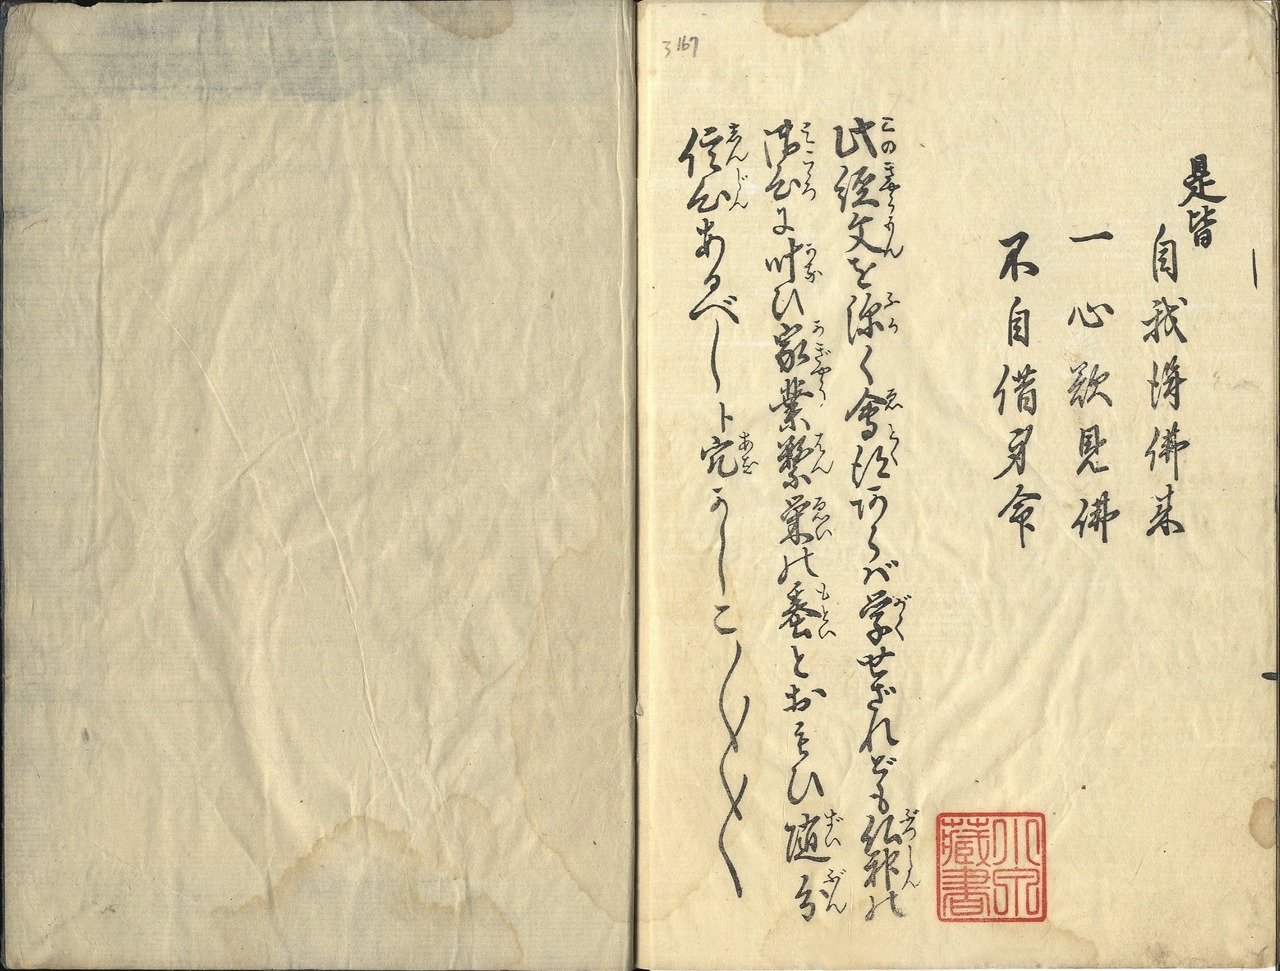 3167
是皆
自我得佛来
一心欲見佛
不自借身命
此経文を深く會得あらば学せざれども仏神の
御心に叶ひ家業繁栄の基とおもひ随分
信心あるべし ト穴かしこ〱〱
小
藏書